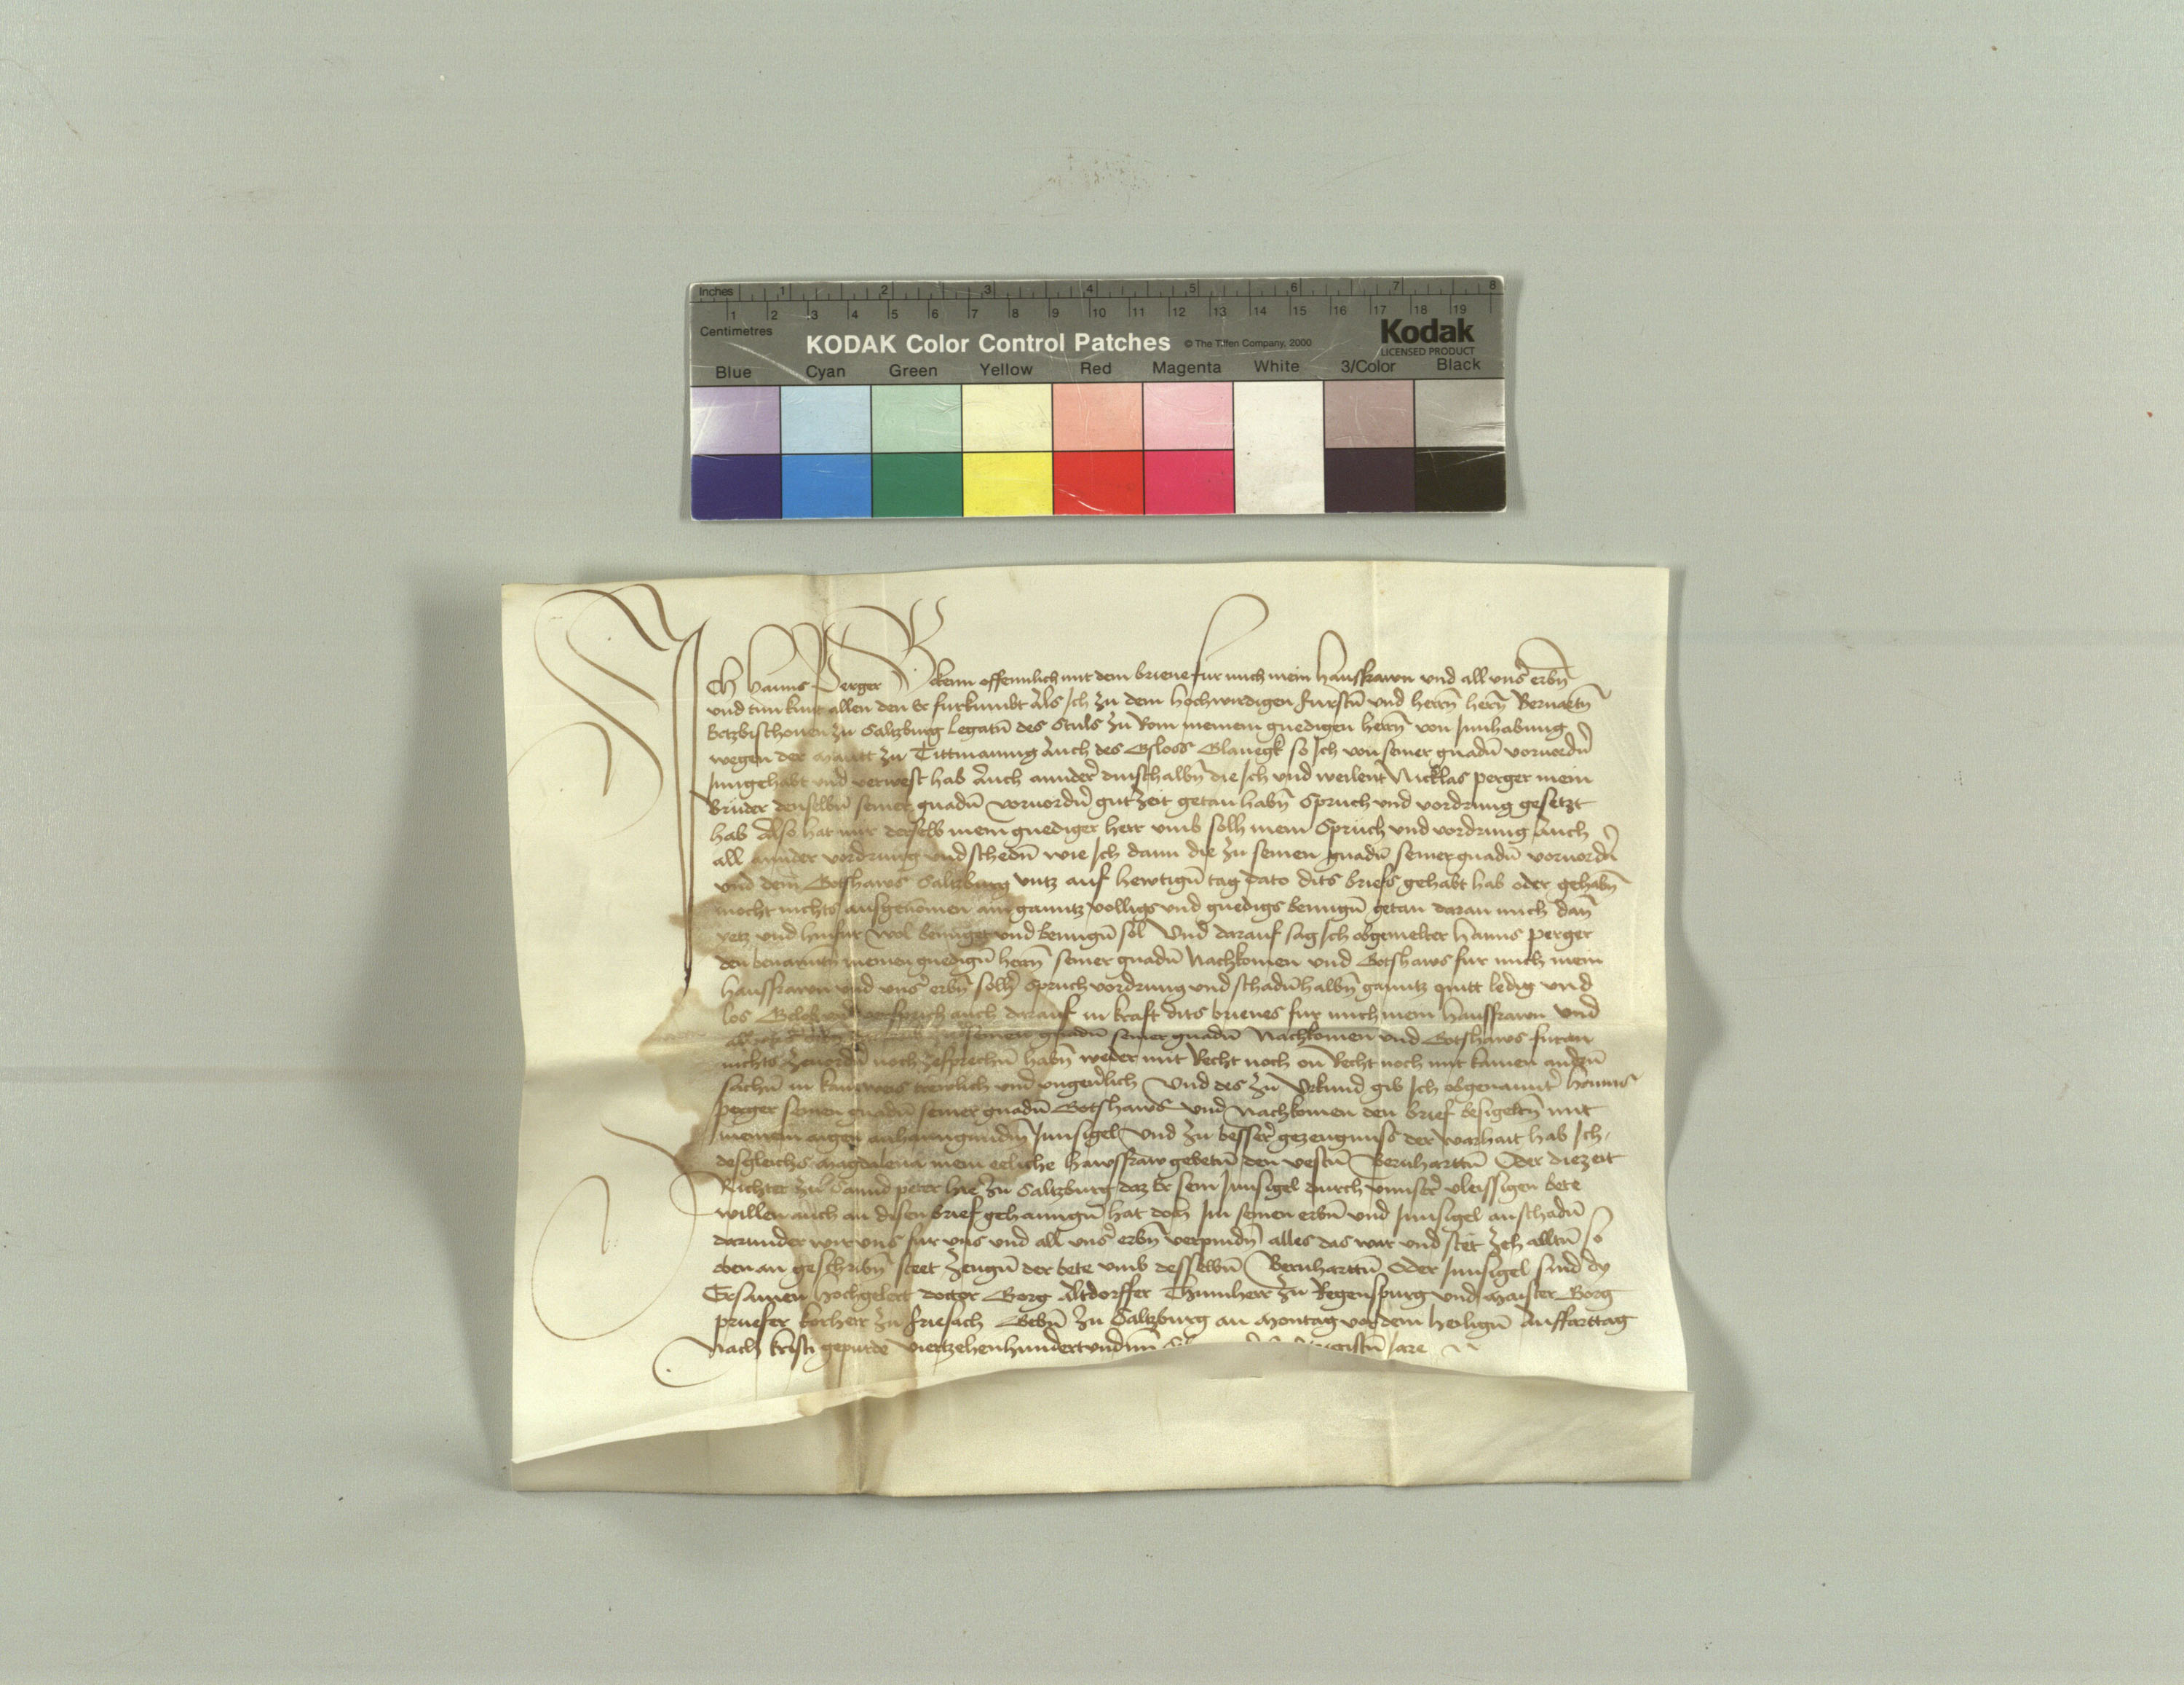 Inches 1 2 3 4 5 6 7 8
1 2 3 4 5 6 7 8 9 10 11 12 13 14 15 16 17 18 19
Centimetres
KODAK Color Control Patches © The Tiffen Company, 2000 Kodak
LICENSED PRODUCT
Blue Cyan Green Yellow Red Magenta White 3/Color Black
Ich Hanns Perger Beken offennlich mit dem brieue fur mich mein hausfrawn vnd all vnser erbn
vnd tun kunt allen den Er furkumbt Als Ich zu dem hochwirdigen furstn vnd herrn hern Bernartn
Ertzbischouen zu Saltzburg legatn des Stuls zu Rom meinem gnedigen herrn von Innhabung
wegen der Mautt zu Tittmanng Auch des Gsloss Glanegk so Ich von seiner gnadn voruordn
Inngehabt vnd verwest hab Auch annder dinsthalbn die Ich vnd weilent Nicklas perger mein
Bruder denselbn seiner gnadn voruordn gut Zeit getan habn Spruch vnd vordrung gesetzt
hab Also hat mir derselb mein gnediger herr vmb solh mein Spruch vnd vordrung Auch
all annder vordrung vnd schedn wie Ich dann die zu seinen gnadn seiner gnadn voruordn
vnd dem Gotshaws Saltzburg vntz auf hewtign tag dato dits briefs gehabt hab oder gehabn
mocht nichts ausgenomen ain ganntz volligs vnd gnedigs benugn getan daran mich dan
yetz vnd hinfur wol benuget vnd benugn sol Vnd darauf sag Ich obgemelter Hanns perger
den benantn meinen gnedign herrn seiner gnadn Nachkomen vnd Gotshaws fur mich mein
hausfrawn vnd vnser erbn solher Spruch vordrung vnd schadnhalbn ganntz quitt ledig vnd
los Gelob vnd versprich auch darauf in kraft dits brieues fur mich mein hausfrawn vnd
seinen gnadn seiner gnadn Nachkomen vnd Gotshaws furan
nichts zeuordn noch zesprechn habn weder mit Recht noch on Recht noch mit kainen anndern
sachn in kainweis trewlich vnd vngeuerlich Vnd des zu Vrkund gib Ich obgenannter Hanns
perger seinen gnadn seiner gnadn Gotshaws vnd Nachkomen den brief besigeltn mit
meinem aigen anhanngundm Innsigel Vnd zu besser gezeugnuss der warhait hab Ich
desgleichs Magdalena mein eeliche hawsfraw gebetn den vestn Bernharttn Oder diezeit
Richter zu Sannd peter hie zu Saltzburg daz Er sein Innsigel durch vnnser vleissigen bete
willen auch an disen brief gehanngn hat doch Im seinen erbn vnd Innsigel anschadn
darunder wir vns fur vns vnd all vnser erbn verpindn alles das war vnd stet zehalltn so
oben an geschribn steet Zeugn der bete vmb desselbn Bernharttn Oder Innsigel sind dy
Ersamen hochgelert doctor Gorg Altdorffer Thumherr zu Regenspurg vnd Maister Gorg
prueser korherr zu friesach Gebn zu Saltzburg an Montag vor dem heilign Auffarttag
Nach kristi gepurde viertzehenhundert vnd Jare